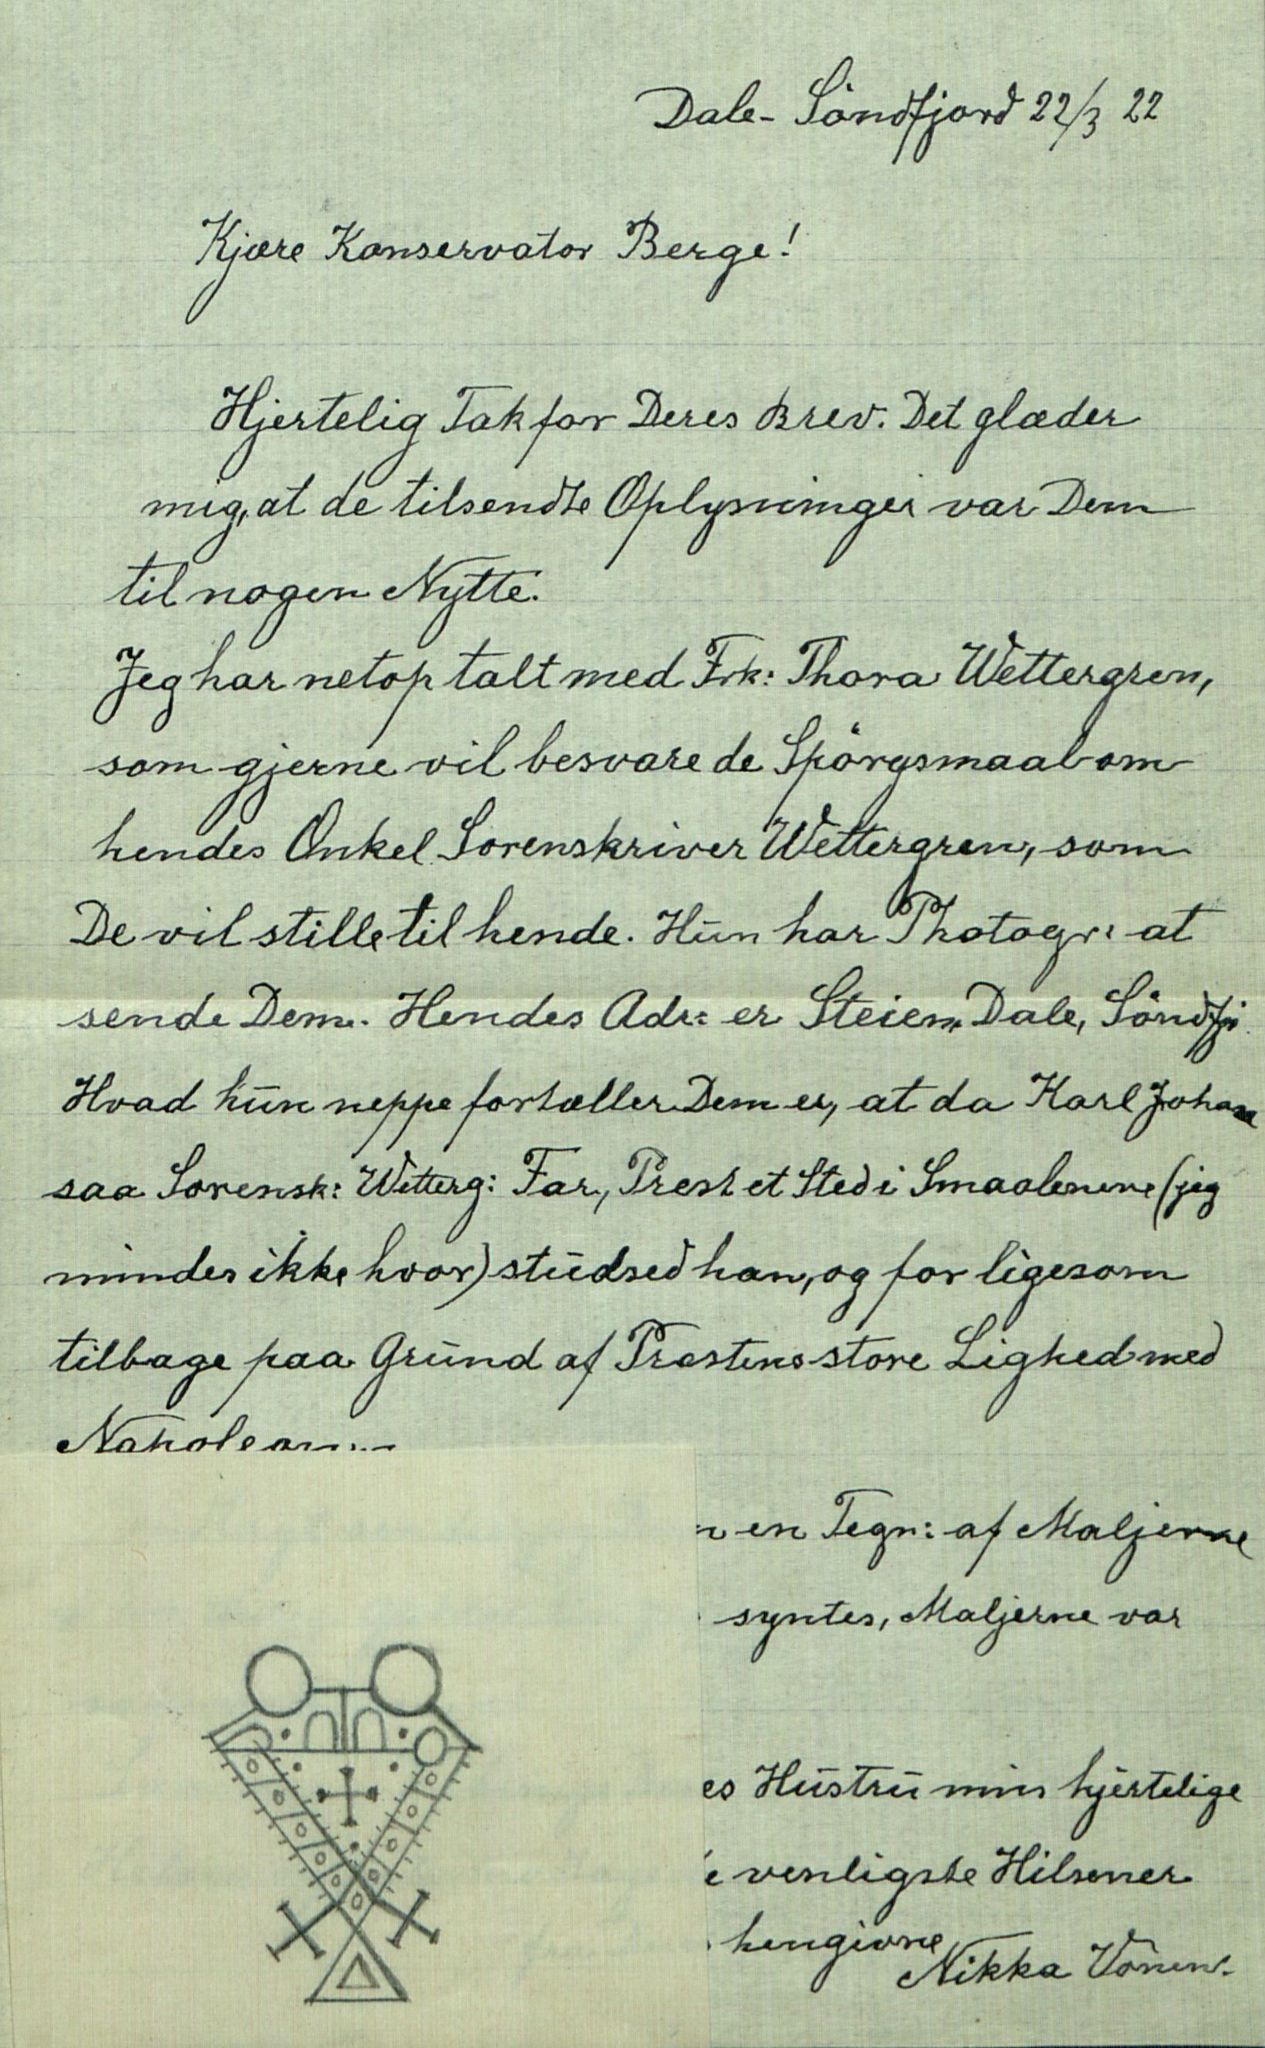 Dale- Söndfjord 22/3 22
Kjære Konservator Berge!
Hjertelig Tak for Deres Brev. Det glæder
mig, at de tilsendte Oplysninger var Dem
til nogen Nytte.
Jeg har netop talt med Frk: Thora Wettergren,
som gjerne vil besvare de Spörgsmaal om
hendes Onkel Sorenskriver Wettergren, som
De vil stille til hende. Hun har Photogr: at
sende Dem. Hendes Adr: er Steien, Dale, Söndfj:
Hvad hun neppe fortæller Dem er, at da Karl Johan
saa Sorensk: Wetterg: Far, Prest et Sted i Smaalenene (jeg
mindes ikke hvor) studsed han, og for ligesom
tilbage paa Grund af Prestens store Lighed med
Napoleon.-
n en Tegn: af Maljerne
syntes, Maljerne var
es Hustru min hjertelige
venligste Hilsener
hengivne
Nikka Vonen.